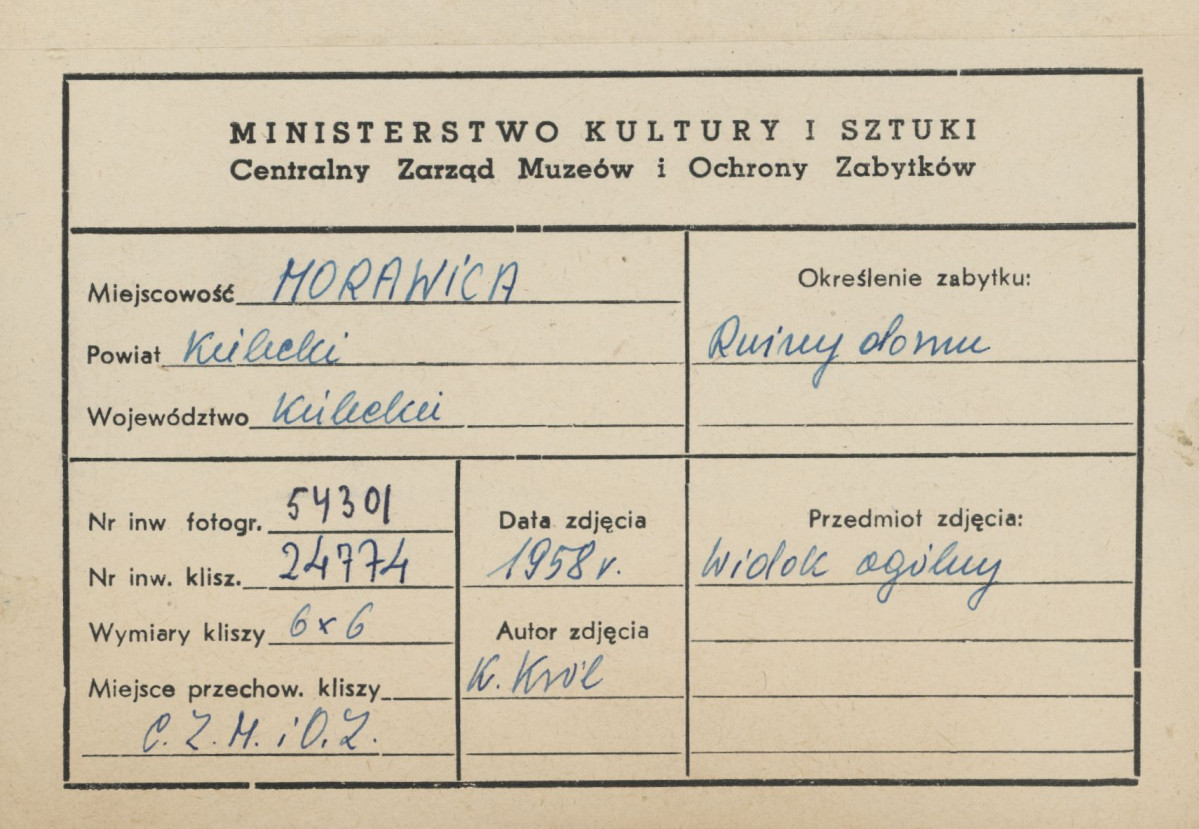 MINISTERSTWO KULTURY I SZTUKI
Centralny Zarząd Muzeów i Ochrony Zabytków
Miejscowość MORAWICA
Powiat Kielecki
Województwo Kielecki
Określenie zabytku:
Ruiny domu
Nr inw fotogr. 54301
Nr inw. klisz. 24774
Wymiary kliszy 6x6
Miejsce przechow. kliszy
C. Z. M. i O. Z.
Data zdjęcia
1958 r.
Autor zdjęcia
K. Król
Przedmiot zdjęcia:
Widok ogólny